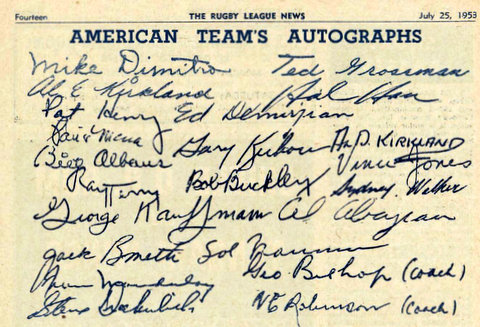 Fourteen THE RUGBY LEAGUE NEWS July 25, 1953
AMERICAN TEAM'S AUTOGRAPHS
Mike Dimitro Ted Grossman
Al E Kirkland Hal Han
Pat Henry Ed Demirjian
Gary Kerkorian M.D. KIRKLAND
Bill Albans Vince Jones
Ray Terry Bob Buckley Sydney Walker
George Kauffmann Al Abajian
Jack Bonetti Sol Naumu
Geo. Bishop (coach)
Steve Drakulvich N E Robinson (coach)